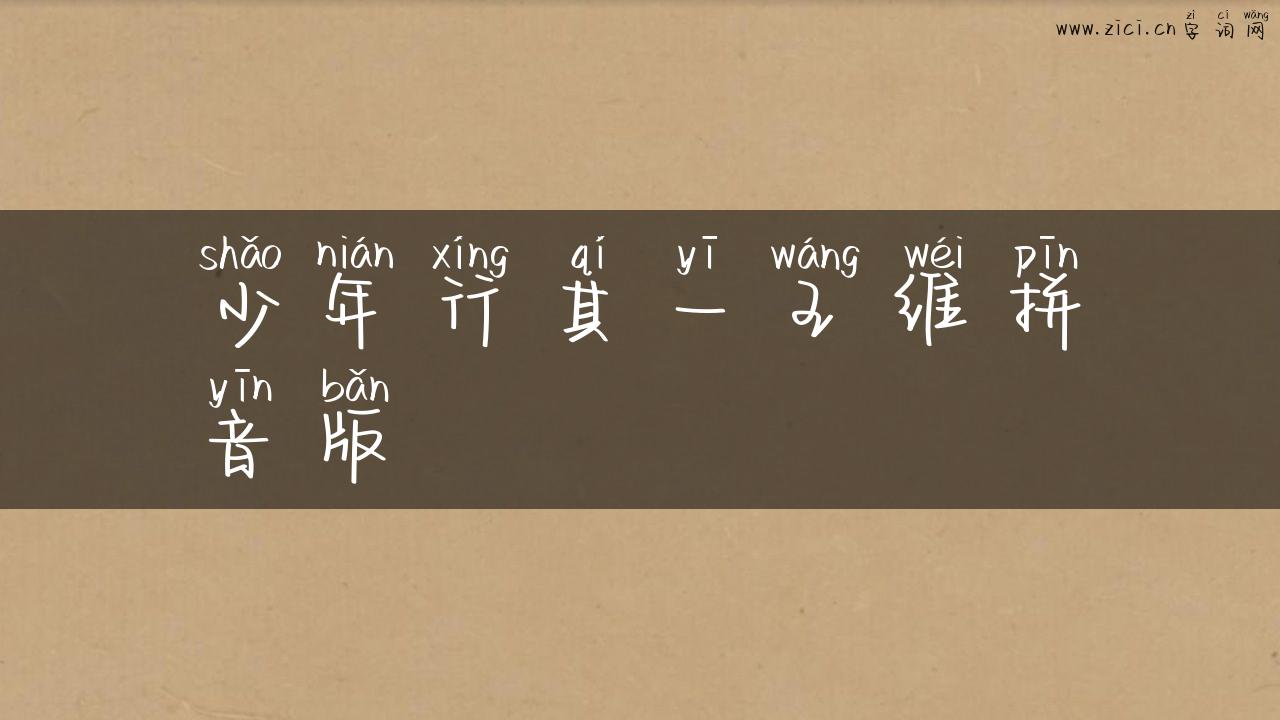 zì cí wǎng
www.zici.cn 字 词 网
shǎo nián xíng qí yī wáng wéi pīn
少 年 行 其 一 王 维 拼
yīn bǎn
音 版